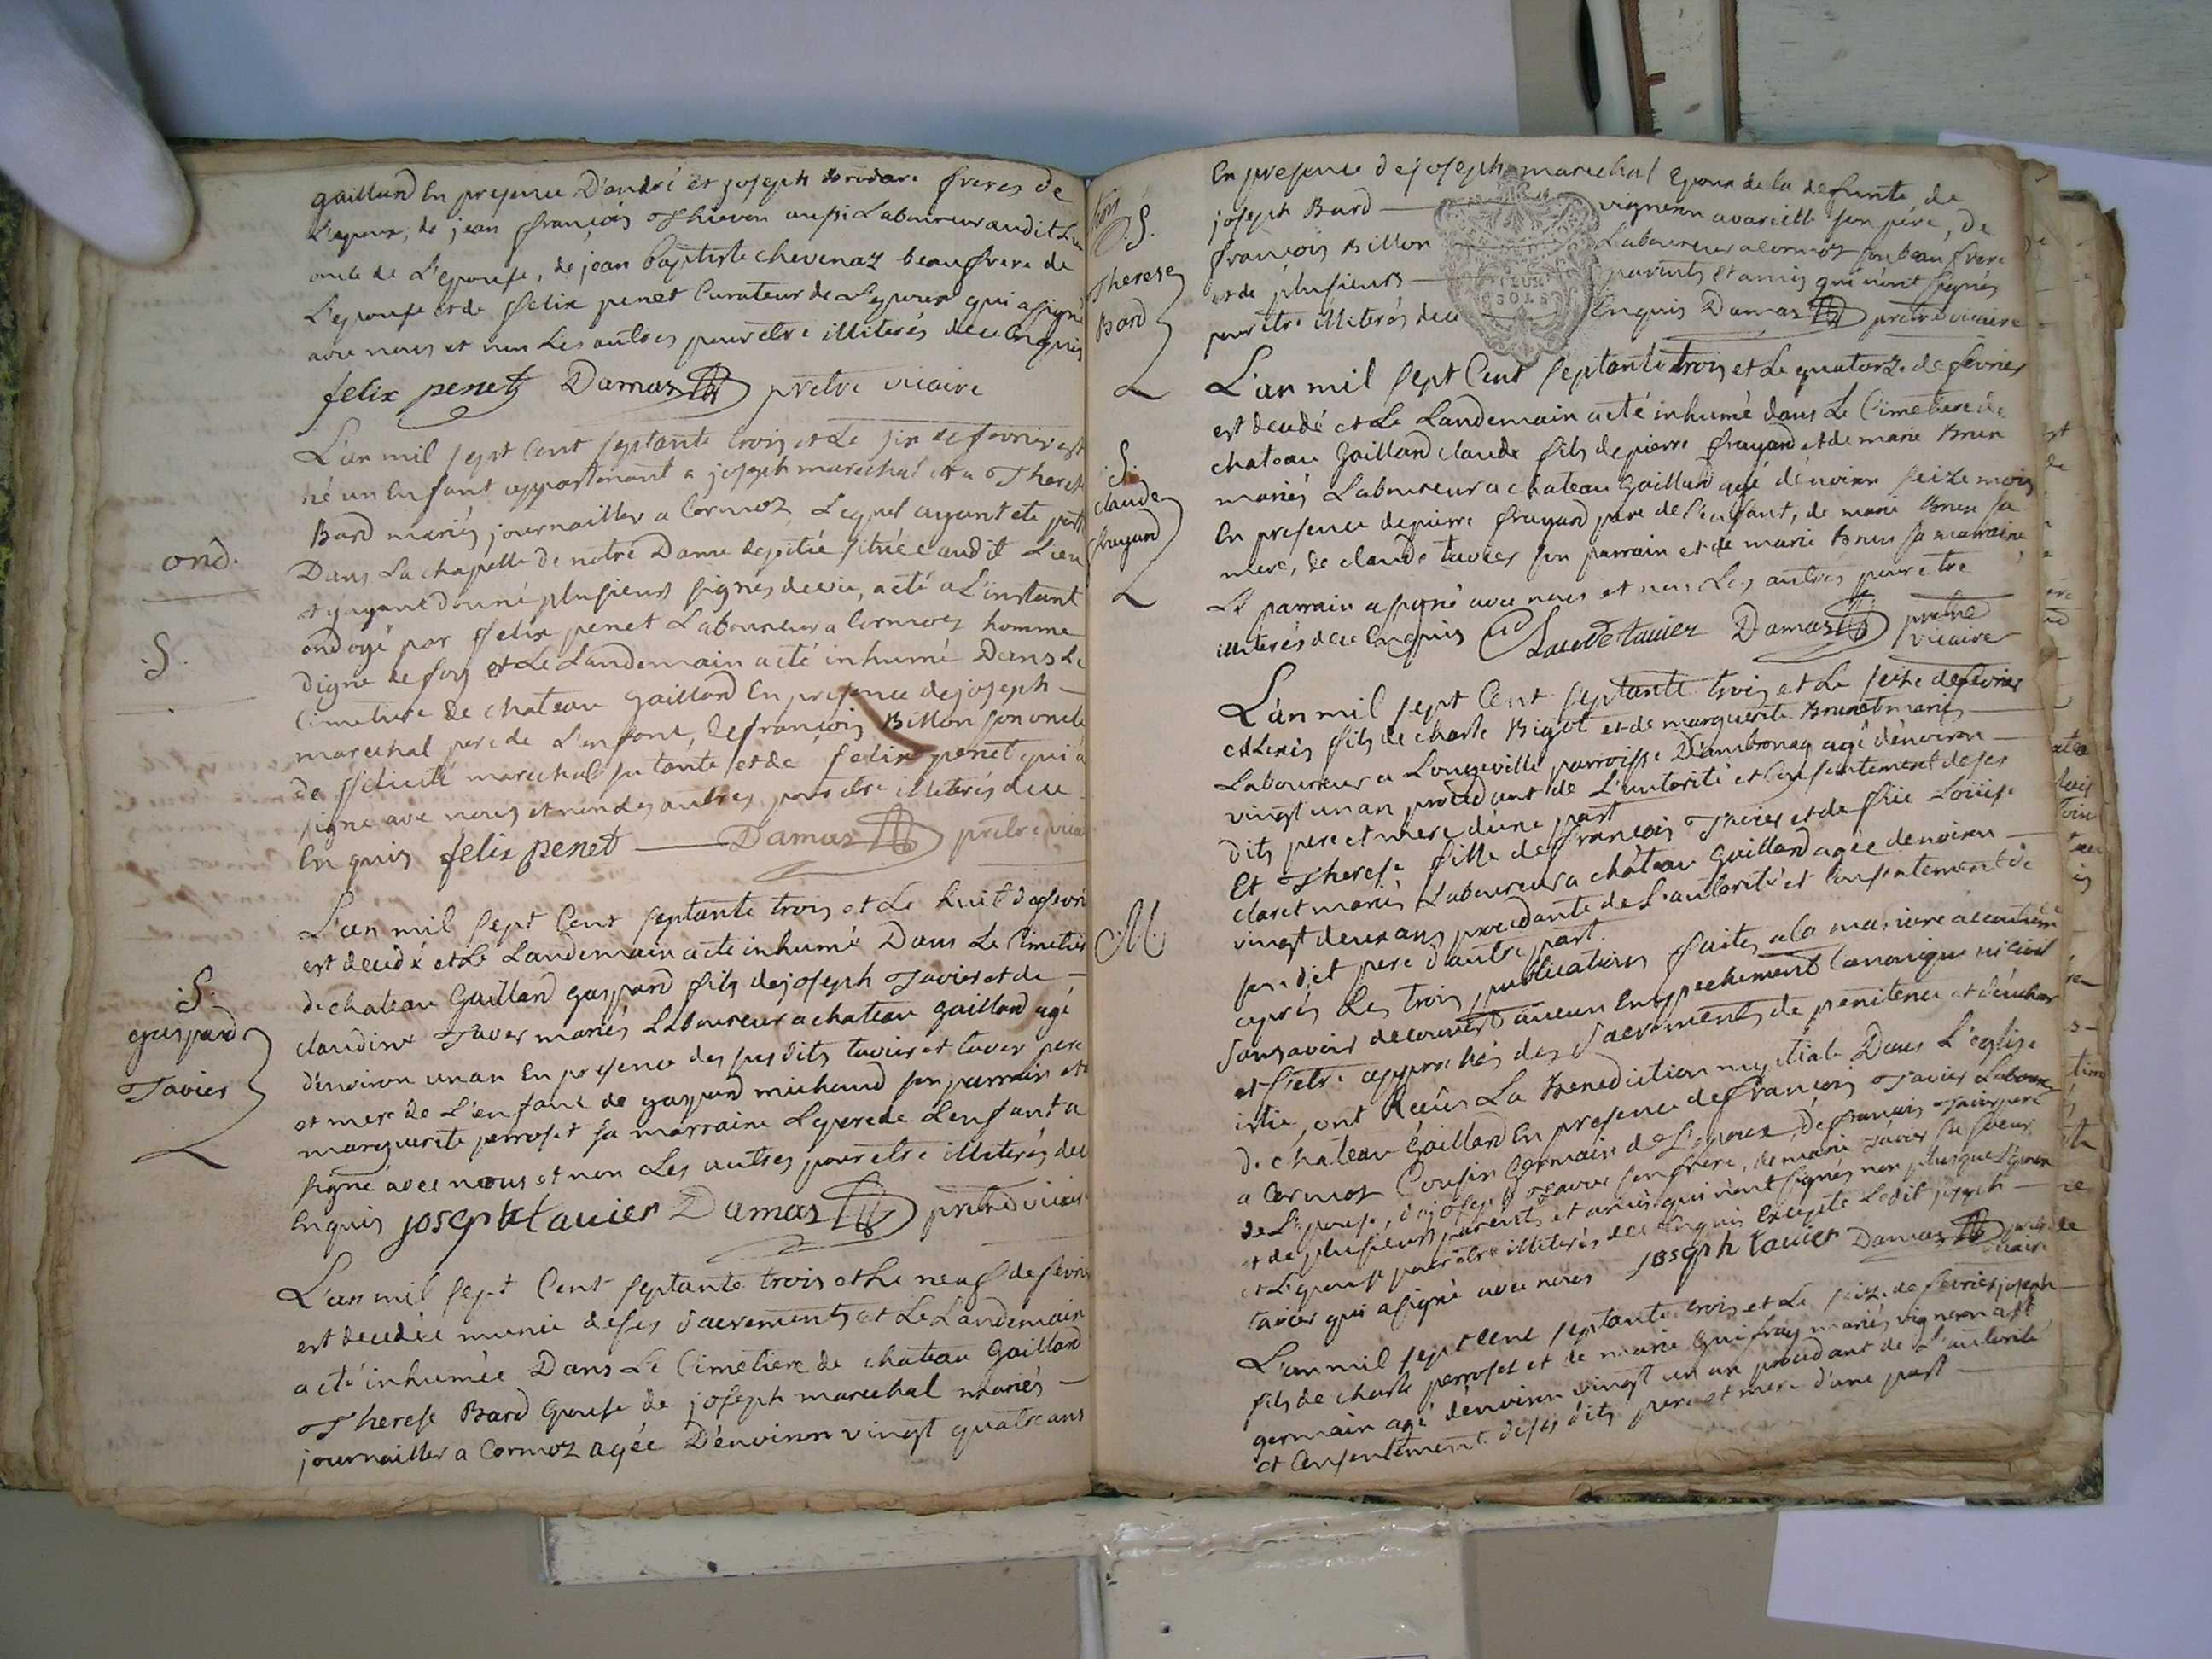 gaillard En presence D'andré et joseph frères de
L'epoux, de jean françois Thievon aussi Laboureur audit Lieu
oncle de L'epouse, de jean baptiste chevenaz beaufrere de
L'epouse et de felix penet Curateur de L'epoux qui a signé
avec nous et non Les autres pour etre illiterés de ce Enquis
felix penet Damaz prêtre vicaire
ond.
S.
L'an mil sept Cent septante trois et Le six de fevrier est
né un Enfant appartenant a joseph marechal et a Therese
Bard mariés journaillier a Cormoz Lequel ayant eté porté
Dans La chapelle de notre Dame de pitié située audit Lieu
et y ayant donné plusieurs signes de vie, a eté a L'instant
ondoyé par felix penet Laboureur a Cormoz homme
digne de foy et Le Landemain a eté inhumé Dans Le
Cimetiere de chateau Gaillard En presence de joseph
marechal pere de L'enfant, de françois Billon son oncle
de felicité marechal sa tante et de felix penet qui a
signé avec nous et non Les autres pour etre illiterés de ce
Enquis felix penet Damaz prêtre vicai
S.
gaspard
Tavier
L'an mil sept Cent septante trois et Le huit de fevrier
est decedé et Le Landemain a eté inhumé Dans Le Cimetiere
de chateau Gaillard gaspard fils de joseph Tavier et de
claudine Taver mariés Laboureur a chateau gaillard agé
d'environ un an En presence des susdits tavier et taver pere
et mere de L'enfant de gaspard michaud son parrain et
marguerite perroset sa marraine Le pere de L'enfant a
signé avec nous et non Les autres pour etre illiterés de ce
Enquis joseph tavier Damaz prêtre vicaire
L'an mil sept Cent septante trois et Le neuf de fevrier
est decedée munie de ses sacrements et Le Landemain
a eté inhumée Dans Le Cimetiere de chateau Gaillard
Therese Bard epouse de joseph marechal mariés
journaillier a Cormoz agée D'environ vingt quatre ans
S.
Therese
Bard
En presence de joseph marechal Epoux de la defunte, de
joseph Bard vigneron a varieille son père, de
françois Billon Laboureur a Cormoz son beau frere
et de plusieurs parents et amis qui n'ont signés
pour etre illiterés de ce Enquis Damaz prêtre vicaire
DEUX
SOLS
S.
claude
frayard
L'an mil sept Cent septante trois et Le quatorze de fevrier
est decedé et Le Landemain a eté inhumé dans Le Cimetiere de
chateau Gaillard claude fils de pierre frayard et de marie Brun
mariés Laboureur a chateau Gaillard agé d'environ seize mois
En presence de pierre frayard pere de l'enfant, de marie Brun sa
mere, de claude tavier son parrain et de marie Brun sa marraine
Le parrain a signé avec nous et non Les autres pour etre
illiterés de ce Enquis Claude tavier Damaz prêtre
vicaire
M.
L'an mil sept Cent septante trois et Le seize de fevrier
fils de charle Bigot et de marguerite Brunet mariés
Laboureur a Longeville parroisse D'ambronay agé d'environ
vingt un an procedant de L'autorité et Consentement de ses
dits pere et mere d'une part
Et Therese fille de françois Tavier et de Loüise
claret mariés Laboureur a château Gaillard agée denviron
vingt deux ans procedante de L'autorité et Consentement de
son dit pere d'autre part
après Les trois publications faites a la maniere accoutumée
sans avoir decouvert aucun Empechement Canonique ni civil
et s'etre approchés des Sacrements de penitence et d'eucha
ristie, ont Reçus La Benediction nuptiale Dans L'eglise
de château Gaillard En presence de françois Tavier Laboureur
a Cormoz Cousin Germain de L'epoux, de françois Tavier pere
de L'epouse, de joseph Tavier son frere, de marie Tavier sa soeur
et de plusieurs parents et amis qui n'ont signés non plus que L'epoux
et L'epouse pour etre illiterés de ce Enquis Excepté Ledit joseph
tavier qui a signé avec nous joseph tavier Damaz prêtre
vicaire
L'an mil sept cent septante trois et Le seize de fevrier joseph
fils de charle perroset et de marie mariés vigneron a st
germain agé d'environ vingt un an procedant de L'autorité
et Consentement de ses dits pere et mere d'une part